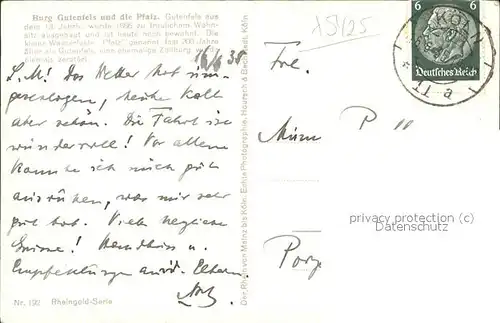 Burg Gutenfels und die Pfalz. Gutenfels aus
dem 13. Jahrhundert, wurde 1886 zu treulichem Wohn-
sitz ausgebaut und ist heute noch bewohnt. Die
kleine Wasserfeste "Pfalz" genannt fast 200 Jahre
älter als Gutenfels, eine ehemalige Zollburg
niemals zerstört.
16/6 38
L. M! Das Wetter hat
umgeschlagen, heute kalt
aber schön. Die Fahrt ist
wundervoll! Vor allem
konnte ich mich gut
ausruhen, was mir sehr
gut tat. Viele herzliche
Grüsse! Handkuss u.
Empfehlungen Eltern
Nr. 192 Rheingold-Serie
Der Rhein von Mainz bis Köln. Echte Photographie, Hoursch & Bechstedt, Köln
15425
6 6
Deutsches Reich
KÖLN
Frl.
privacy protection (c)
Datenschutz